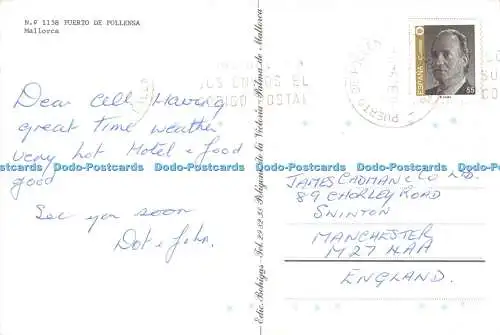 N.º 1138 PUERTO DE POLLENSA
Mallorca
Dear All Having
great Time weather
very hot Hotel & food
good
See you soon
Dot & John.
Edic. Bohigas - Tel. 29 52 55 Polígono de la Victoria - Palma de Mallorca
ESPAÑA
55
PUERTO
JAMES CADMAN & CO LTD.
89 CHORLEY ROAD
SWINTON
MANCHESTER
M27 4AA
ENGLAND.
Dodo-Postcards Dodo-Postcards Dodo-Postcards Dodo-Postcards Dodo-Postcards